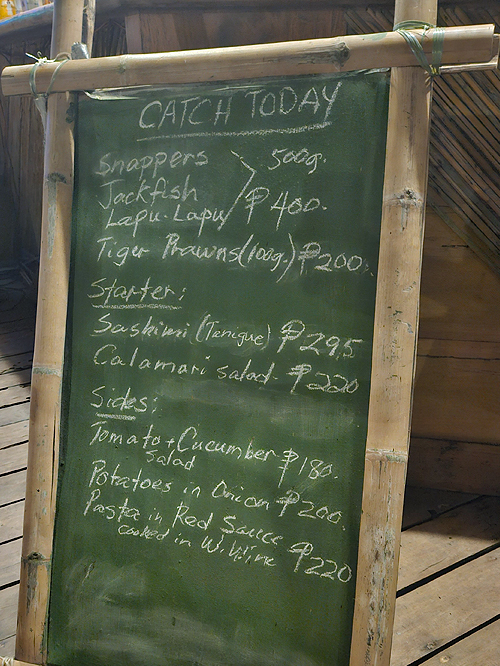 CATCH TODAY
Snappers 500g.
Jackfish
Lapu-Lapu ₱400.
Tiger Prawns (100g.) ₱200.
Starter:
Sashimi (Tanigue) ₱295
Calamari salad ₱220
Sides:
Tomato + Cucumber ₱180.
Salad
Potatoes in Onion ₱200.
Pasta in Red Sauce ₱220
cooked in W. Wine